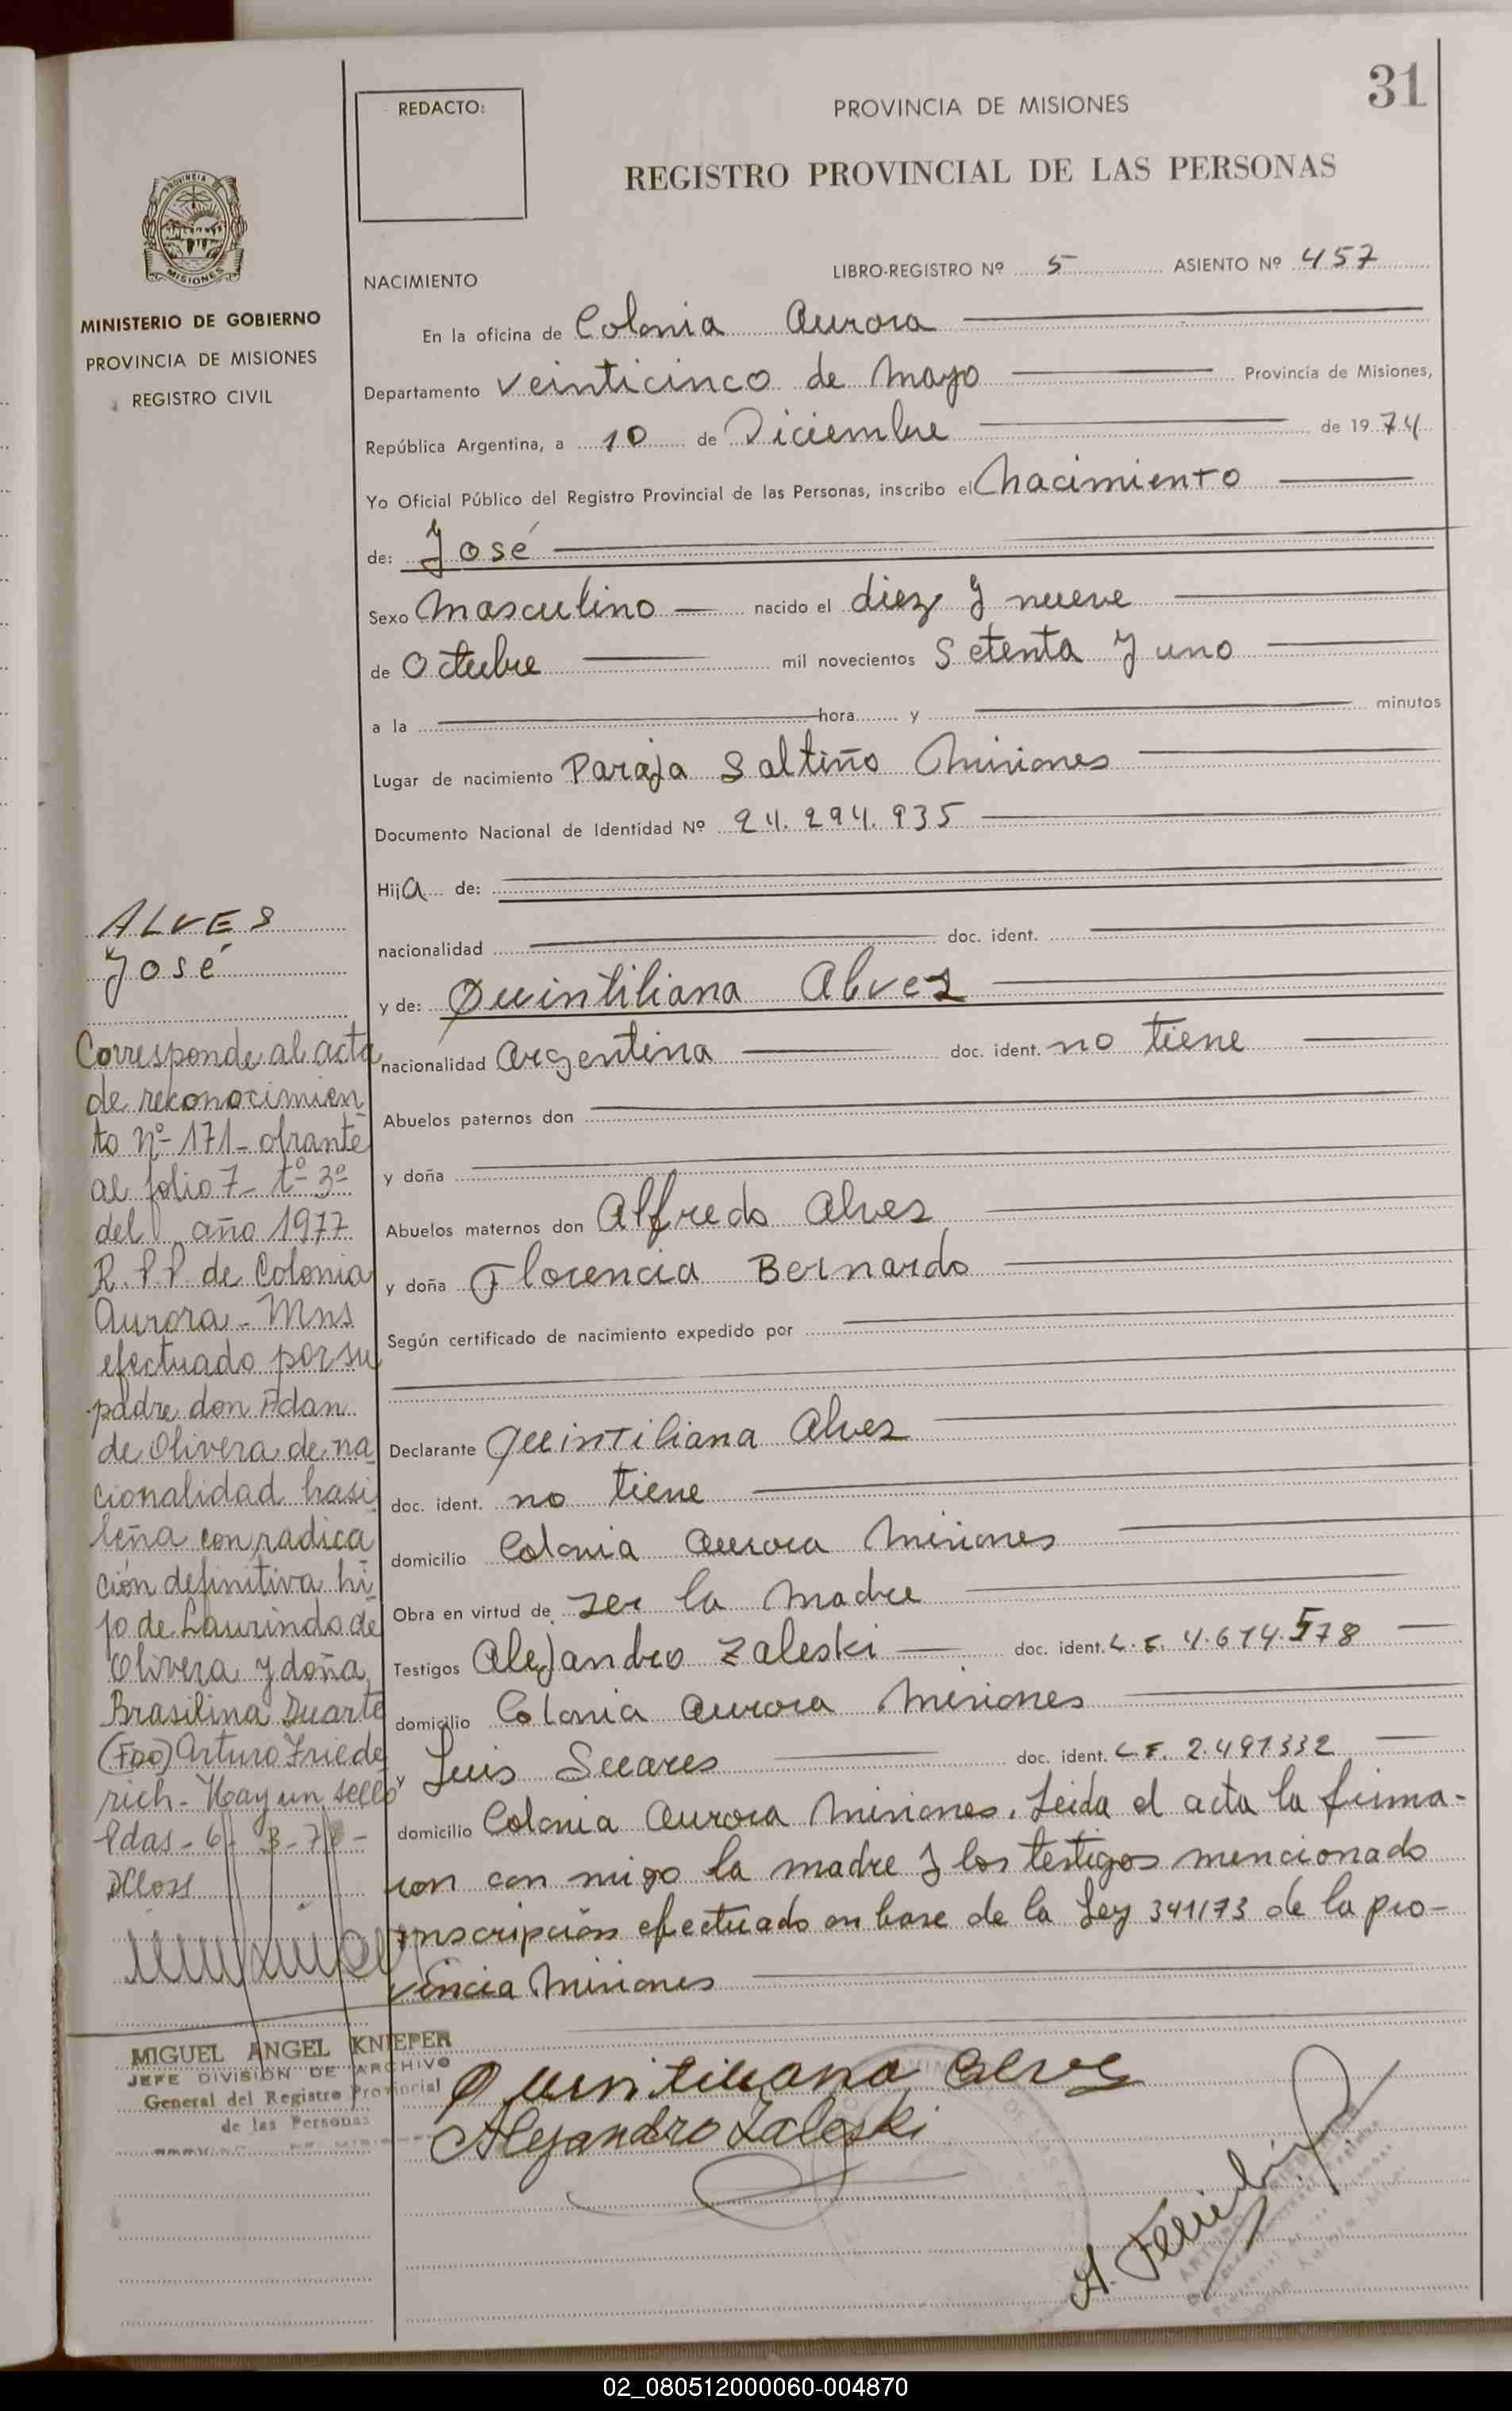 31
REDACTO:
PROVINCIA DE MISIONES
REGISTRO PROVINCIAL DE LAS PERSONAS
PROVINCIA DE
MISIONES
MINISTERIO DE GOBIERNO
PROVINCIA DE MISIONES
REGISTRO CIVIL
NACIMIENTO
LIBRO-REGISTRO Nº 5 ASIENTO Nº 457
En la oficina de Colonia Aurora
Departamento Veinticinco de Mayo Provincia de Misiones,
República Argentina, a 10 de Diciembre de 1974
Yo Oficial Público del Registro Provincial de las Personas, inscribo el Nacimiento
de: José
Sexo Masculino nacido el diez y nueve
de Octubre mil novecientos Setenta y uno
a la hora y minutos
Lugar de nacimiento Paraja Saltiño Misiones
Documento Nacional de Identidad Nº 24.294.935
Hija de:
nacionalidad doc. ident.
y de: Quintiliana Alvez
nacionalidad Argentina doc. ident. no tiene
Abuelos paternos don
y doña
Abuelos maternos don Alfredo Alvez
y doña Florencia Bernardo
Según certificado de nacimiento expedido por
Declarante Quintiliana Alvez
doc. ident. no tiene
domicilio Colonia Aurora Misiones
Obra en virtud de ser la madre
Testigos Alejandro Zaleski doc. ident. L.E. 4.614.578
domicilio Colonia Aurora Misiones
y Luis Suares doc. ident. L.E. 2.491332
domicilio Colonia Aurora Misiones. Leida el acta la firma-
ron con migo la madre y los testigos mencionado
inscripción efectuado en base de la Ley 341173 de la pro-
vincia Misiones
Quintiliana Alvez
Alejandro Zaleski
ALVES
José
Corresponde al acta
de reconocimien
to nº 171- obrante
al folio 7- tº 3º
del año 1977
R.P.P de Colonia
Aurora - Mns
efectuado por su
padre don Adan
de Olivera de na
cionalidad brasi
leña con radica
ción definitiva hi
jo de Laurindo de
Olivera y doña
Brasilina Duarte
(FDO) Arturo Friede
rich - Hay un sello
Pdas - 6- 3-78-
MIGUEL ANGEL KNIEPER
JEFE DIVISIÓN DE ARCHIVO
General del Registro Provincial
de las Personas
02_080512000060-004870